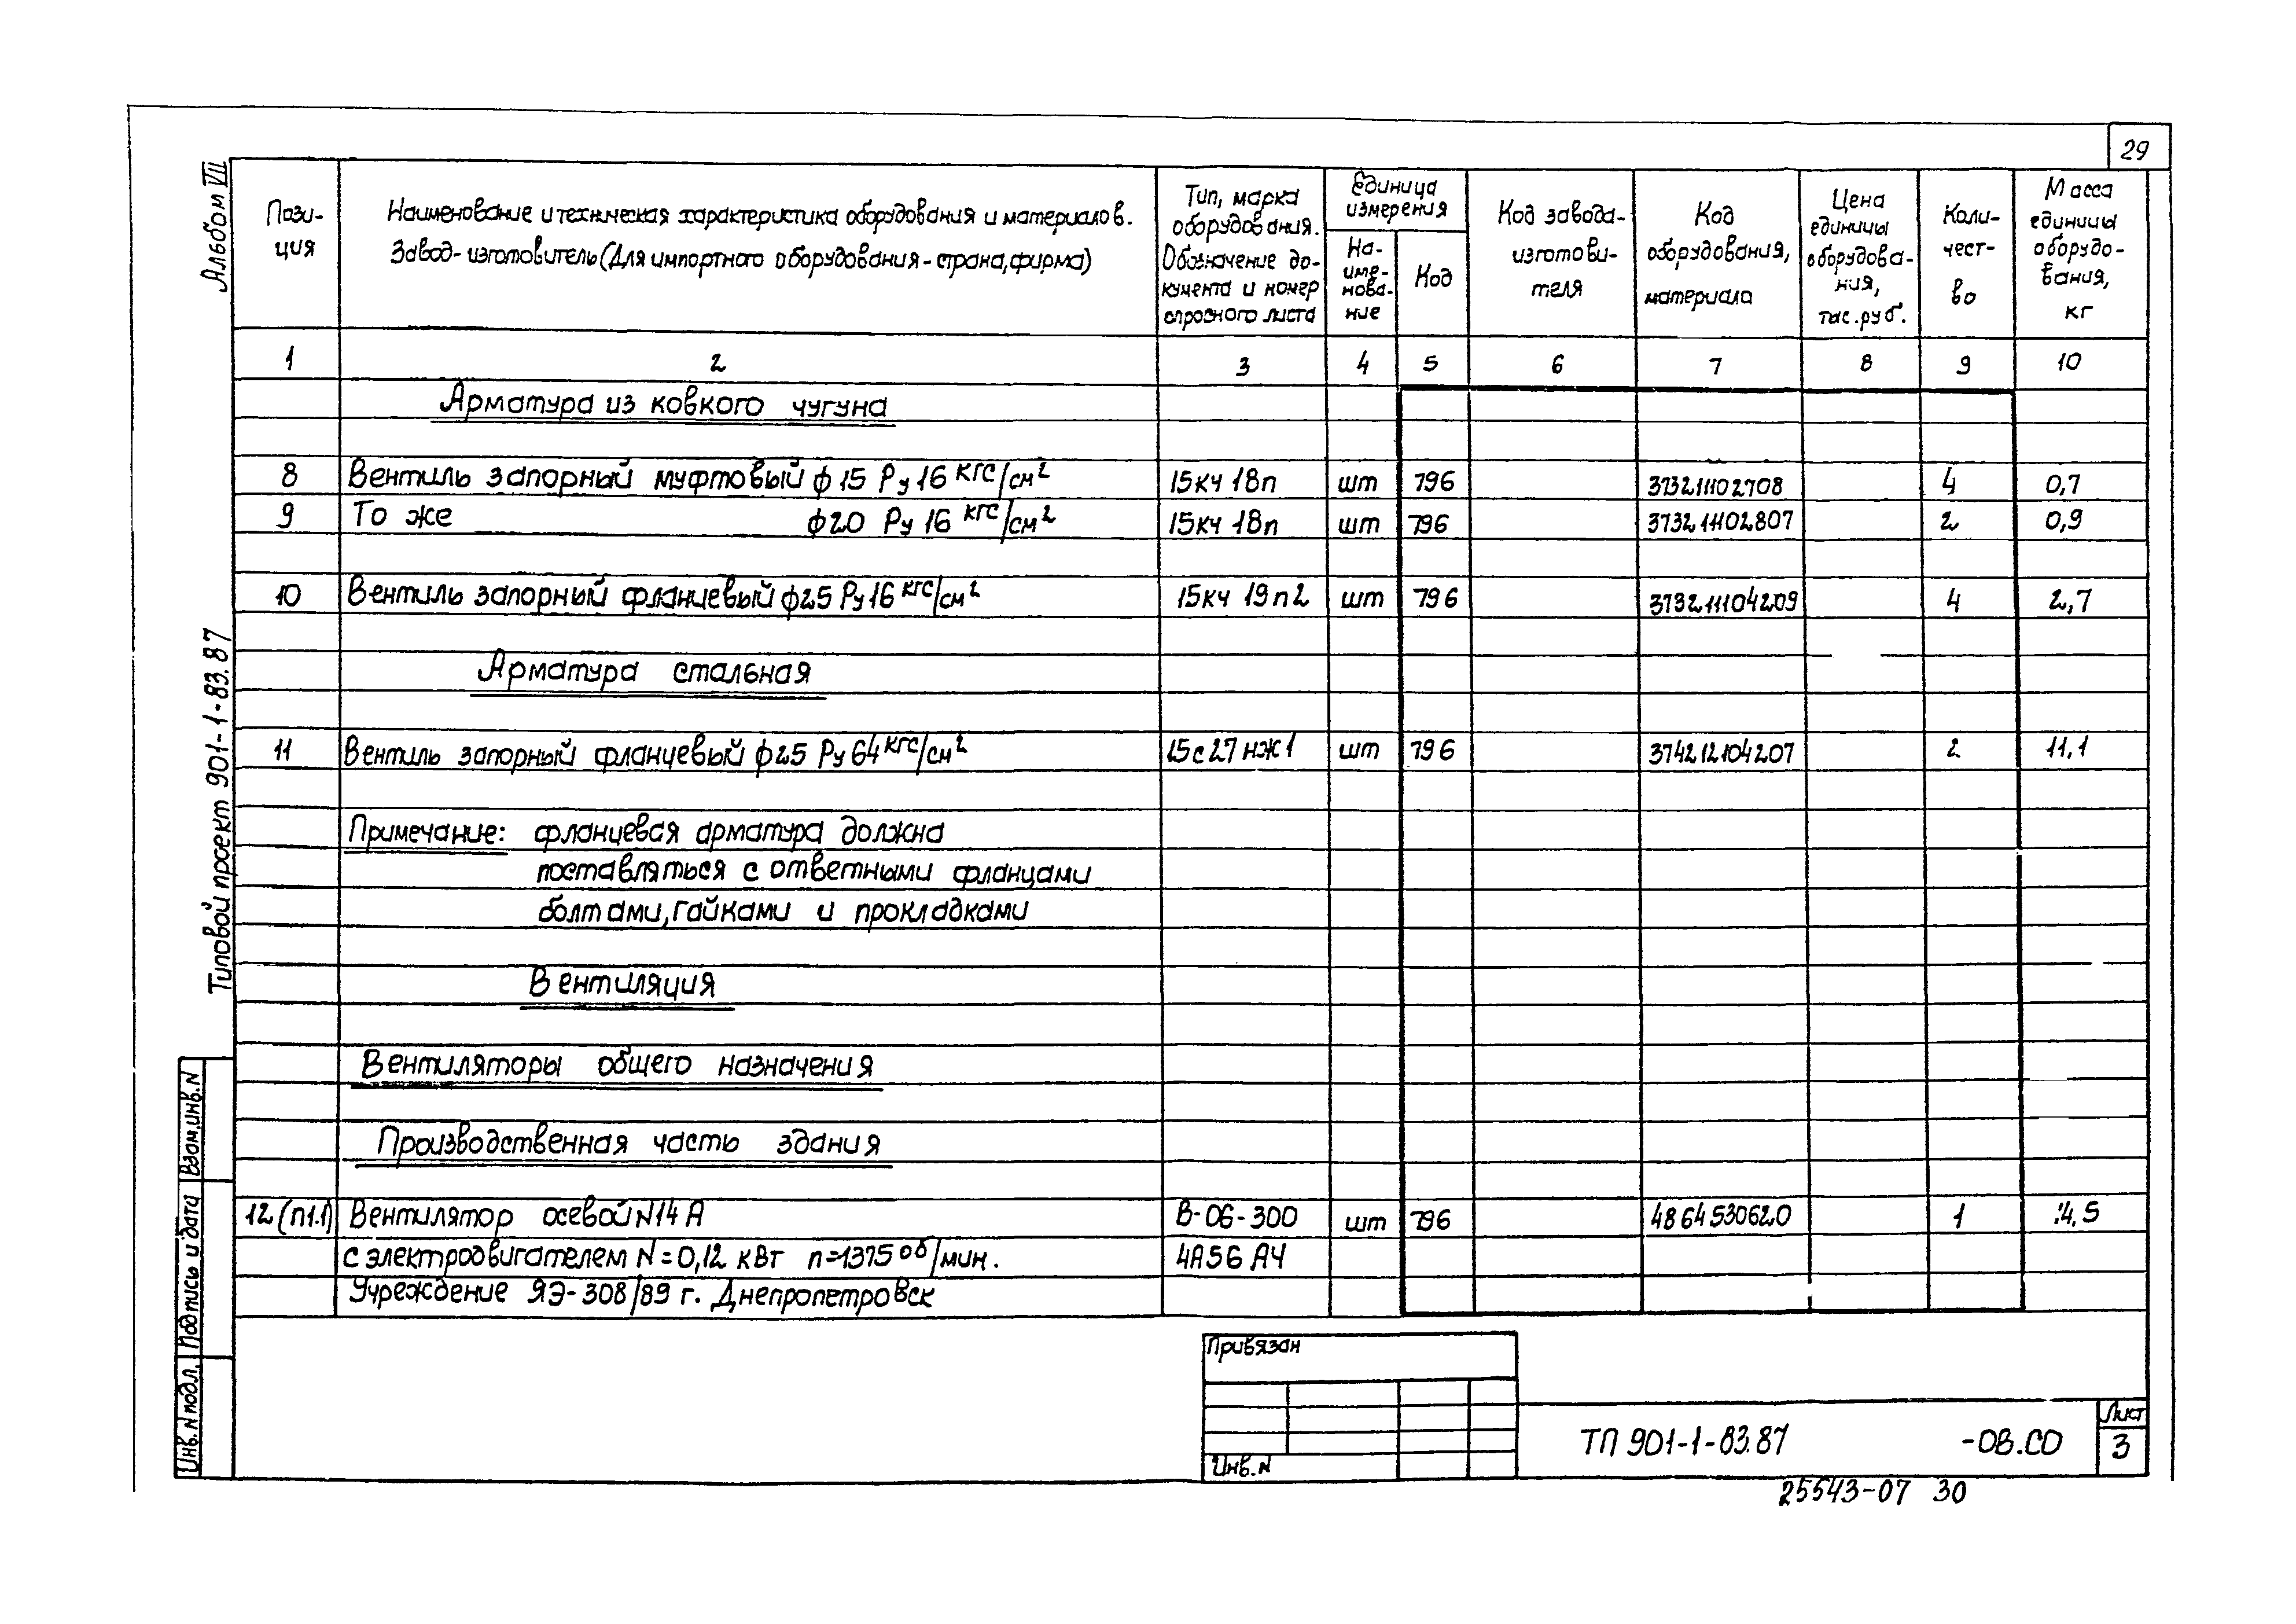 29
Альбом VII
Типовой проект 901-1-83.87
Пози-
ция
Наименование и техническая характеристика оборудования и материалов.
Завод-изготовитель (Для импортного оборудования - страна, фирма)
Тип, марка
оборудования.
Обозначение до-
кумента и номер
опросного листа
Единица
измерения
На-
име-
нова-
ние
Код
Код завода-
изготови-
теля
Код
оборудования,
материала
Цена
единицы
оборудова-
ния,
тыс. руб.
Коли-
чест-
во
Масса
единицы
оборудо-
вания,
кг
1 2 3 4 5 6 7 8 9 10
Арматура из ковкого чугуна
8 Вентиль запорный муфтовый ф 15 Ру 16 кгс/см² 15кч 18п шт 796 373211102708 4 0,7
9 То же ф20 Ру 16 кгс/см² 15кч 18п шт 796 373211102807 2 0,9
10 Вентиль запорный фланцевый ф25 Ру16 кгс/см² 15кч 19п2 шт 796 373211104209 4 2,7
Арматура стальная
11 Вентиль запорный фланцевый ф25 Ру 64 кгс/см² 15с27нж1 шт 796 374212104207 2 11,1
Примечание: фланцевая арматура должна
поставляться с ответными фланцами
болтами, гайками и прокладками
Вентиляция
Вентиляторы общего назначения
Производственная часть здания
12 (П1.1) Вентилятор осевой N14А В-06-300 шт 796 4864530620 1 14.5
с электродвигателем N=0,12 кВт n=1375 об/мин. 4А56А4
Учреждение ЯЭ-308/89 г. Днепропетровск
Взам.инв.N
Подпись и дата
Инв. N подл.
Привязан
Инв. N
ТП 901-1-83.87 -ОВ.СО
Лист
3
25543-07 30